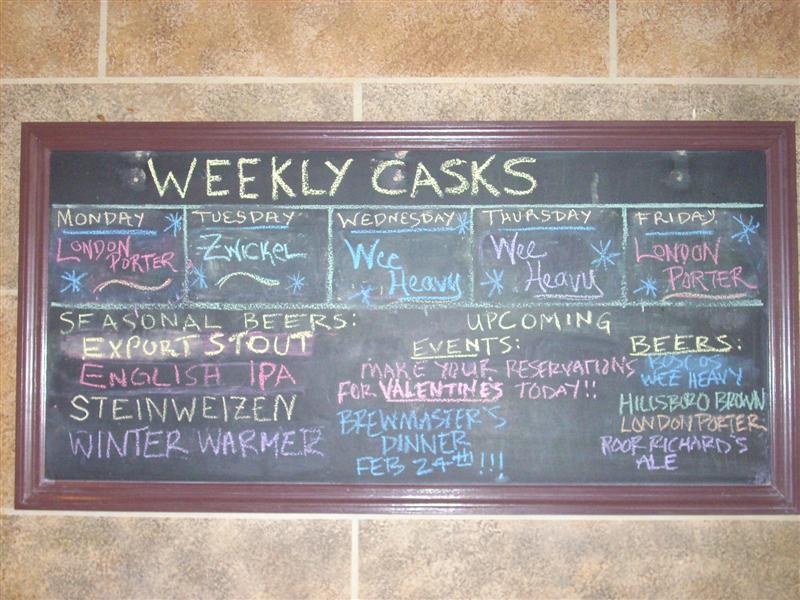 WEEKLY CASKS
MONDAY
LONDON
PORTER
TUESDAY
ZWICKEL
WEDNESDAY
WEE
HEAVY
THURSDAY
WEE
HEAVY
FRIDAY
LONDON
PORTER
SEASONAL BEERS:
EXPORT STOUT
ENGLISH IPA
STEINWEIZEN
WINTER WARMER
UPCOMING
EVENTS:
MAKE YOUR RESERVATIONS
FOR VALENTINE'S TODAY!!
BREWMASTER'S
DINNER
FEB 24th!!!
BEERS:
BOSCOS
WEE HEAVY
HILLSBORO BROWN
LONDON PORTER
POOR RICHARD'S
ALE